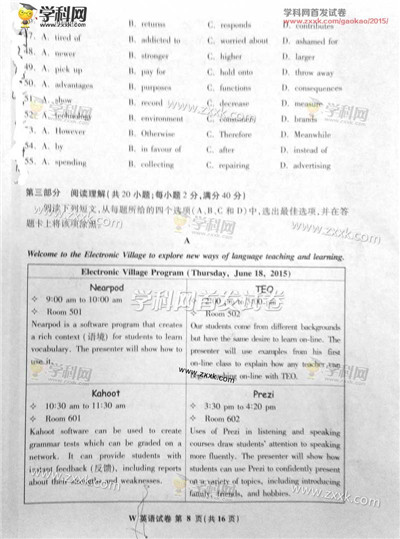 学科网首发试卷
www.zxxk.com/gaokao/2015/
B. returns C. responds D. contributes
47. A. tired of B. addicted to C. worried about D. ashamed for
48. A. newer B. stronger C. higher D. larger
49. A. pick up B. pay for C. hold onto D. throw away
50. A. advantages B. purposes C. functions D. consequences
51. A. show B. record C. decrease D. measure
52. A. technology B. environment C. consumers D. brands
53. A. However B. Otherwise C. Therefore D. Meanwhile
54. A. by B. in favour of C. after D. instead of
55. A. spending B. collecting C. repairing D. advertising
第三部分 阅读理解(共20小题;每小题2分,满分40分)
阅读下列短文,从每题所给的四个选项(A、B、C和D)中,选出最佳选项,并在答
题卡上将该项涂黑。
A
Welcome to the Electronic Village to explore new ways of language teaching and learning.
Electronic Village Program (Thursday, June 18, 2015)
Nearpod
9:00 am to 10:00 am
Room 501
Nearpod is a software program that creates
a rich context (语境) for students to learn
vocabulary. The presenter will show how to
use it.
TEO
2:00 pm to
Room 502
Our students come from different backgrounds
but have the same desire to learn on-line. The
presenter will use examples from his first
on-line class to explain how any teacher can
teaching on-line with TEO.
Kahoot
10:30 am to 11:30 am
Room 601
Kahoot software can be used to create
grammar tests which can be graded on a
network. It can provide students with
instant feedback (反馈), including reports
about their strengths and weaknesses.
Prezi
3:30 pm to 4:20 pm
Room 602
Uses of Prezi in listening and speaking
courses draw students' attention to speaking
more fluently. The presenter will show how
students can use Prezi to confidently present
on a variety of topics, including introducing
family, friends, and hobbies.
W 英语试卷 第 8 页(共 16 页)
学科网
www.zxxk.com
学科网首发试卷